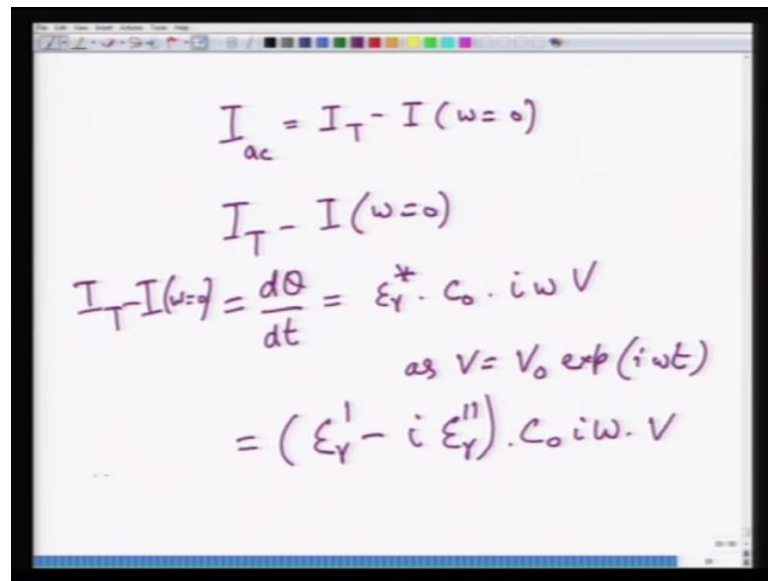 I_ac = I_T - I (ω = 0)
I_T - I (ω=0)
I_T - I(ω=0) = dQ/dt = ε_r^* · C_0 · i ω V
as V = V_0 exp (i ωt)
= ( ε_r' - i ε_r'' ) . C_0 i ω . V